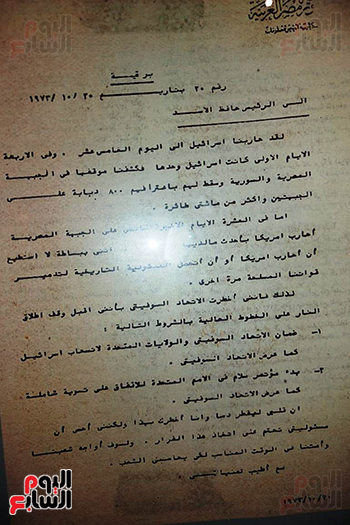 اليوم السابع
جمهورية مصر العربية
برقية
رقم ٢٠ بتاريخ ٢٠ /١٠ /١٩٧٣
الى الرئيس حافظ الاسد
لقد حاربنا اسرائيل الى اليوم الخامس عشر . وفى الاربعة
الايام الاولى كانت اسرائيل وحدها فكشفنا موقفها فى الجبهة
المصرية والسورية وسقط لهم باعترافهم ٨٠٠ دبابة على
الجبهتين واكثر من مائتى طائرة .
اما فى العشرة الايام الاخيرة على الجبهة المصرية
أحارب امريكا بأحدث مالديها انى ببساطة لا استطيع
أن أحارب امريكا أو أن أتحمل المسئولية التاريخية لتدمير
قواتنا المسلحة مرة اخرى .
لذلك فاننى أخطرت الاتحاد السوفيتى بأننى اقبل وقف اطلاق
النار على الخطوط الحالية بالشروط التالية :
١- ضمان الاتحاد السوفيتى والولايات المتحدة لانسحاب اسرائيل
كما عرض الاتحاد السوفيتى .
٢- بدء مؤتمر سلام فى الامم المتحدة للاتفاق على تسوية شاملة
كما عرض الاتحاد السوفيتى .
ان قلبى ليقطر دما وانا أخطرك بهذا ولكننى أحس أن
مسئوليتى تحتم على اتخاذ هذا القرار . ولسوف أواجه شعبنا
وأمتنا فى الوقت المناسب لكى يحاسبنى الشعب .
مع أطيب تمنياتى ،
١٩٧٣/١٠/٢٠
اليوم السابع